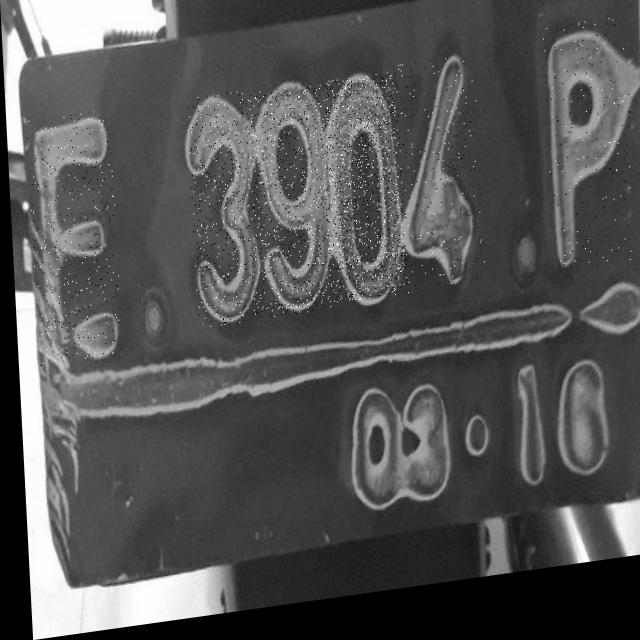 E 3904 P
08·10